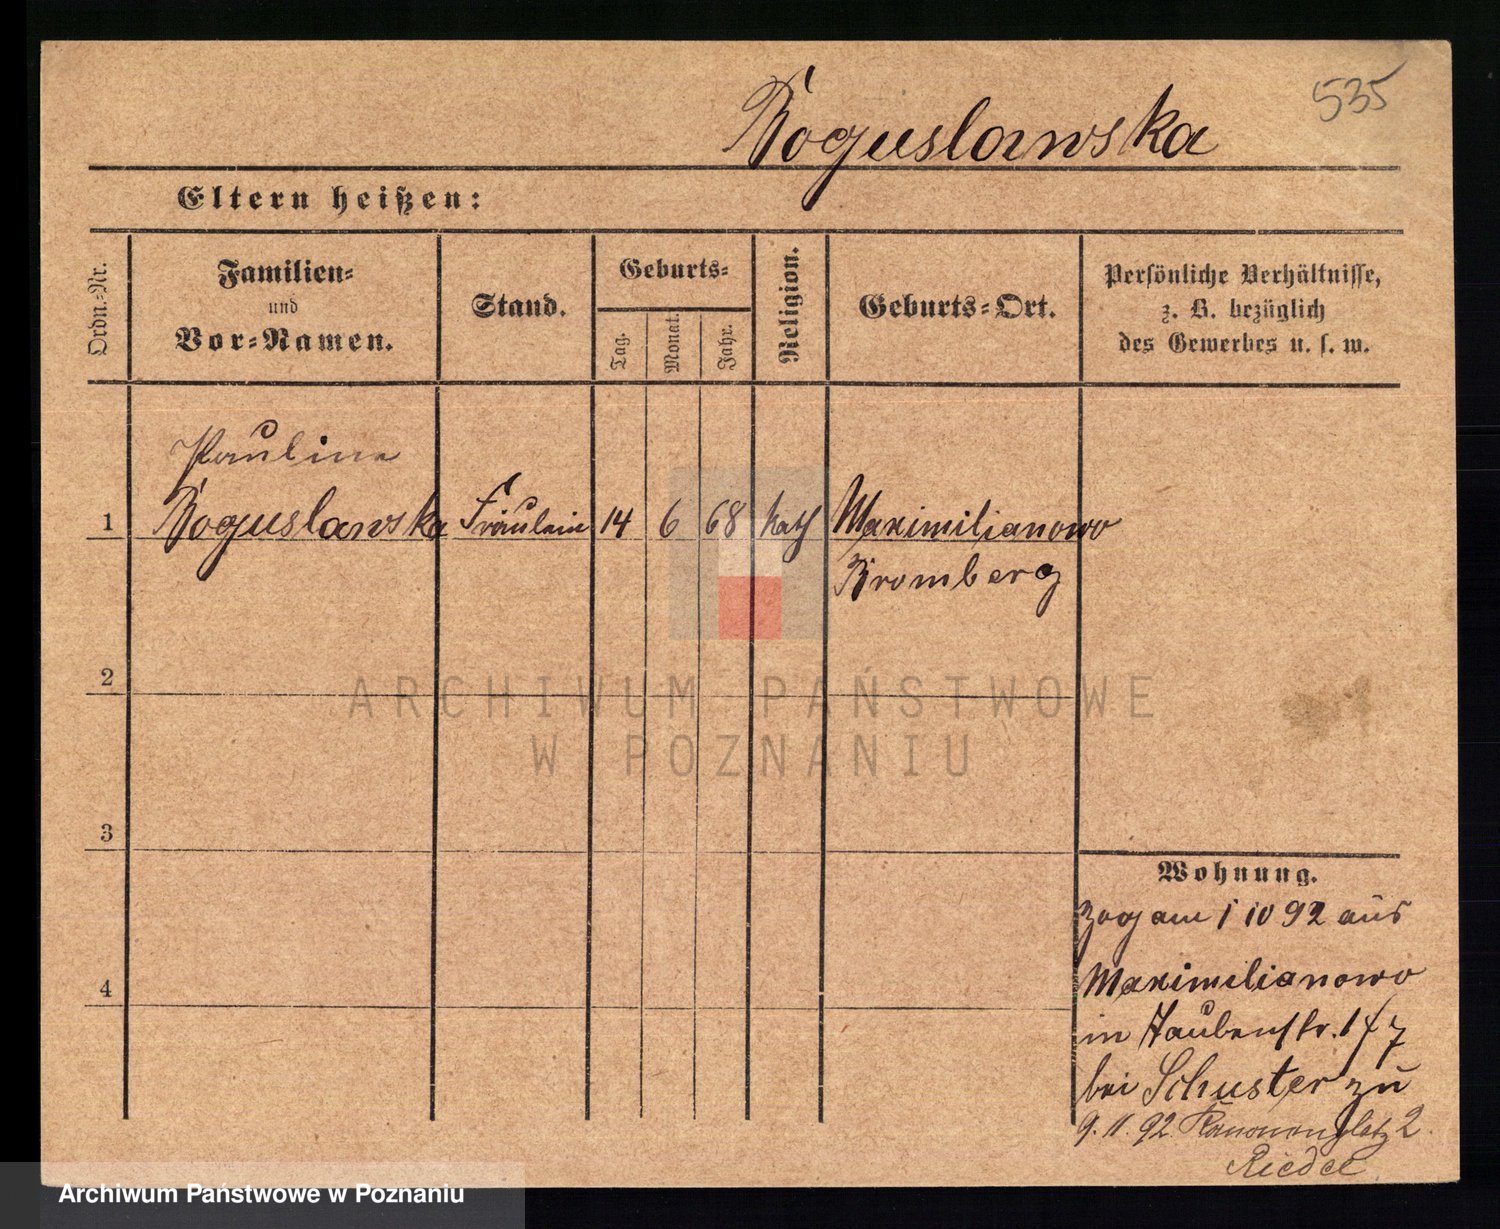 535
Boguslawska
Eltern heißen:
Ordn.-Nr.
Familien-
und
Vor-Namen.
Stand.
Geburts-
Tag.
Monat.
Jahr.
Religion.
Geburts-Ort.
Persönliche Verhältnisse,
z. B. bezüglich
des Gewerbes u. s. w.
Pauline
1 Boguslawska Fräulein 14 6 68 kath Maximilianowo
Bromberg
2
3
4
Wohnung.
Zog am 1 10 92 aus
Maximilianowo
in Taubenstr.
bei Schuster zu
9. 11. 92 Kanonenplatz 2.
Riedel
ARCHIWUM PAŃSTWOWE
W POZNANIU
Archiwum Państwowe w Poznaniu